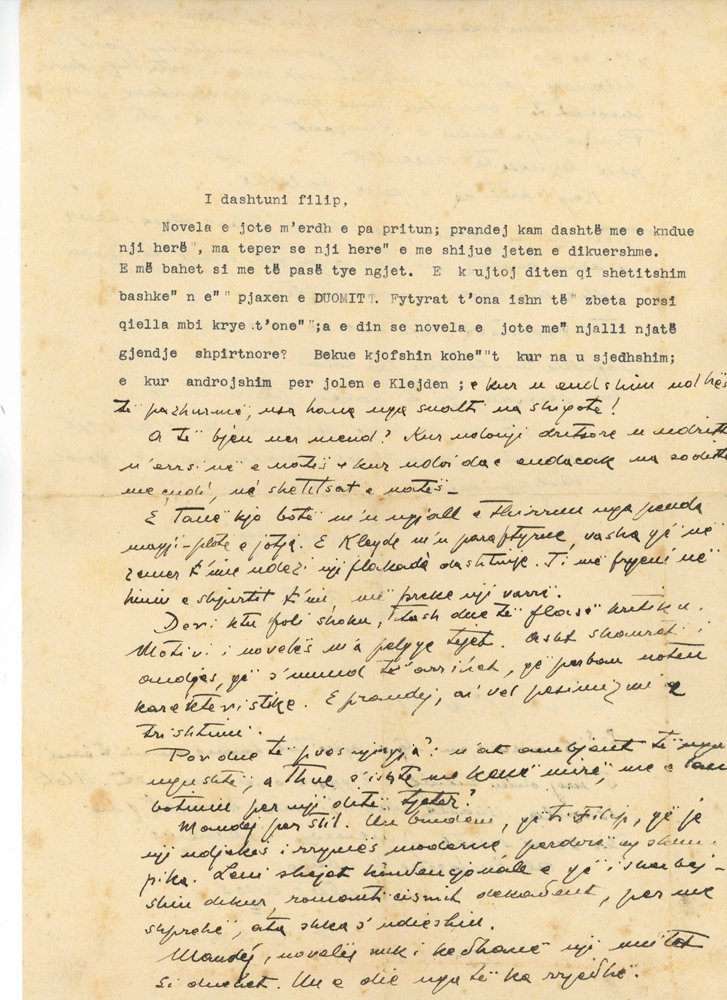 I dashtuni filip,
Novela e jote m'erdh e pa pritun; prandej kam dashtë me e kndue
nji herë", ma teper se nji here" e me shijue jeten e dikuershme.
E më bahet si me të pasë tye ngjet. E kujtoj diten qi shetitshim
bashke" n e"" pjaxen e DUOMIT. Fytyrat t'ona ishn të" zbeta porsi
qiella mbi krye t'one"";a e din se novela e jote me" njalli njatë
gjendje shpirtnore? Bekue kjofshin kohe""t kur na u sjedhshim;
e kur androjshim per jolen e Klejden ; e kur u endshim
të pazhurmë, nga na shigote!
A të bjen ner mend? Kur ndonji dritsore u ndritte
n'errsinë e natës e kur ndoi endacak na
me çudi, në shetitsat e natës –
E tanë kjo botë m'u ngjall e thirrun nga penda
magji-plote e jotja. E Klejde m'u paraftyrue, vasha që në
zemer t'ime ndezi nji flakadâ dashtnije. Ti më fryeni në
hinin e shpirtit t'im më preke nji varrë.
Deri ktu foli shoku, tash due të flasë kritiku.
Motivi i novelës m'a pelqye tejet. Asht
andjes, që s'mund të arrihet, që permban noten
karakteristike. E prandej, ai vel pesimizmi e
trishtimi.
Por due të pyes njigja: n'at ambjent të
ngushtë, a thue s'ishte me kenë mirë, me e lanë
botimin per nji ditë tjeter?
Mandej per stil. Un bindem, që ti Filip, që je
nji ndjekës i rrymës moderne perdorë
pika. Leni shejet konvencjonale që i
shin dikur romanticismit dekadent, per me
shprehë, ata shka s'ndieshin.
Mandej, novelës nuk i ke dhanë nji unitet
si duhet. Un e di nga të ka rrjedhë.